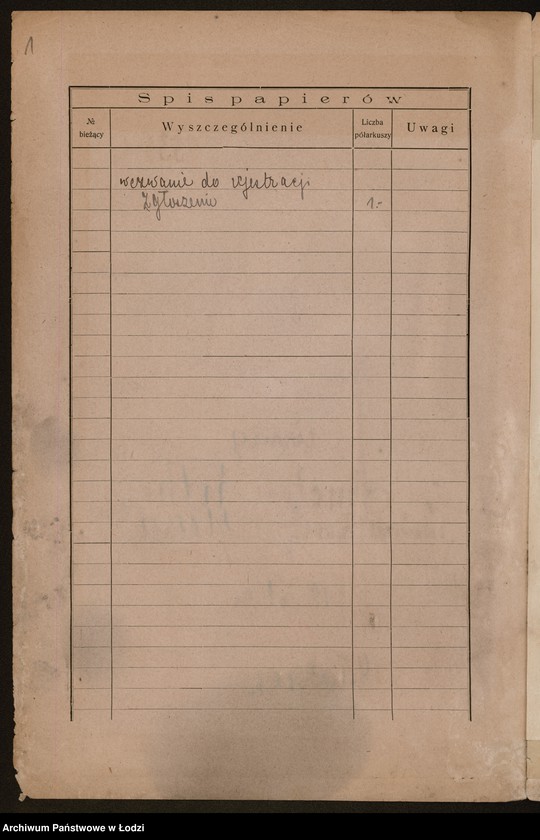 1
Spis papierów
№ bieżący
Wyszczególnienie
Liczba półarkuszy
Uwagi
wezwanie do rejestracji
Zgłoszenie 1.-
Archiwum Państwowe w Łodzi